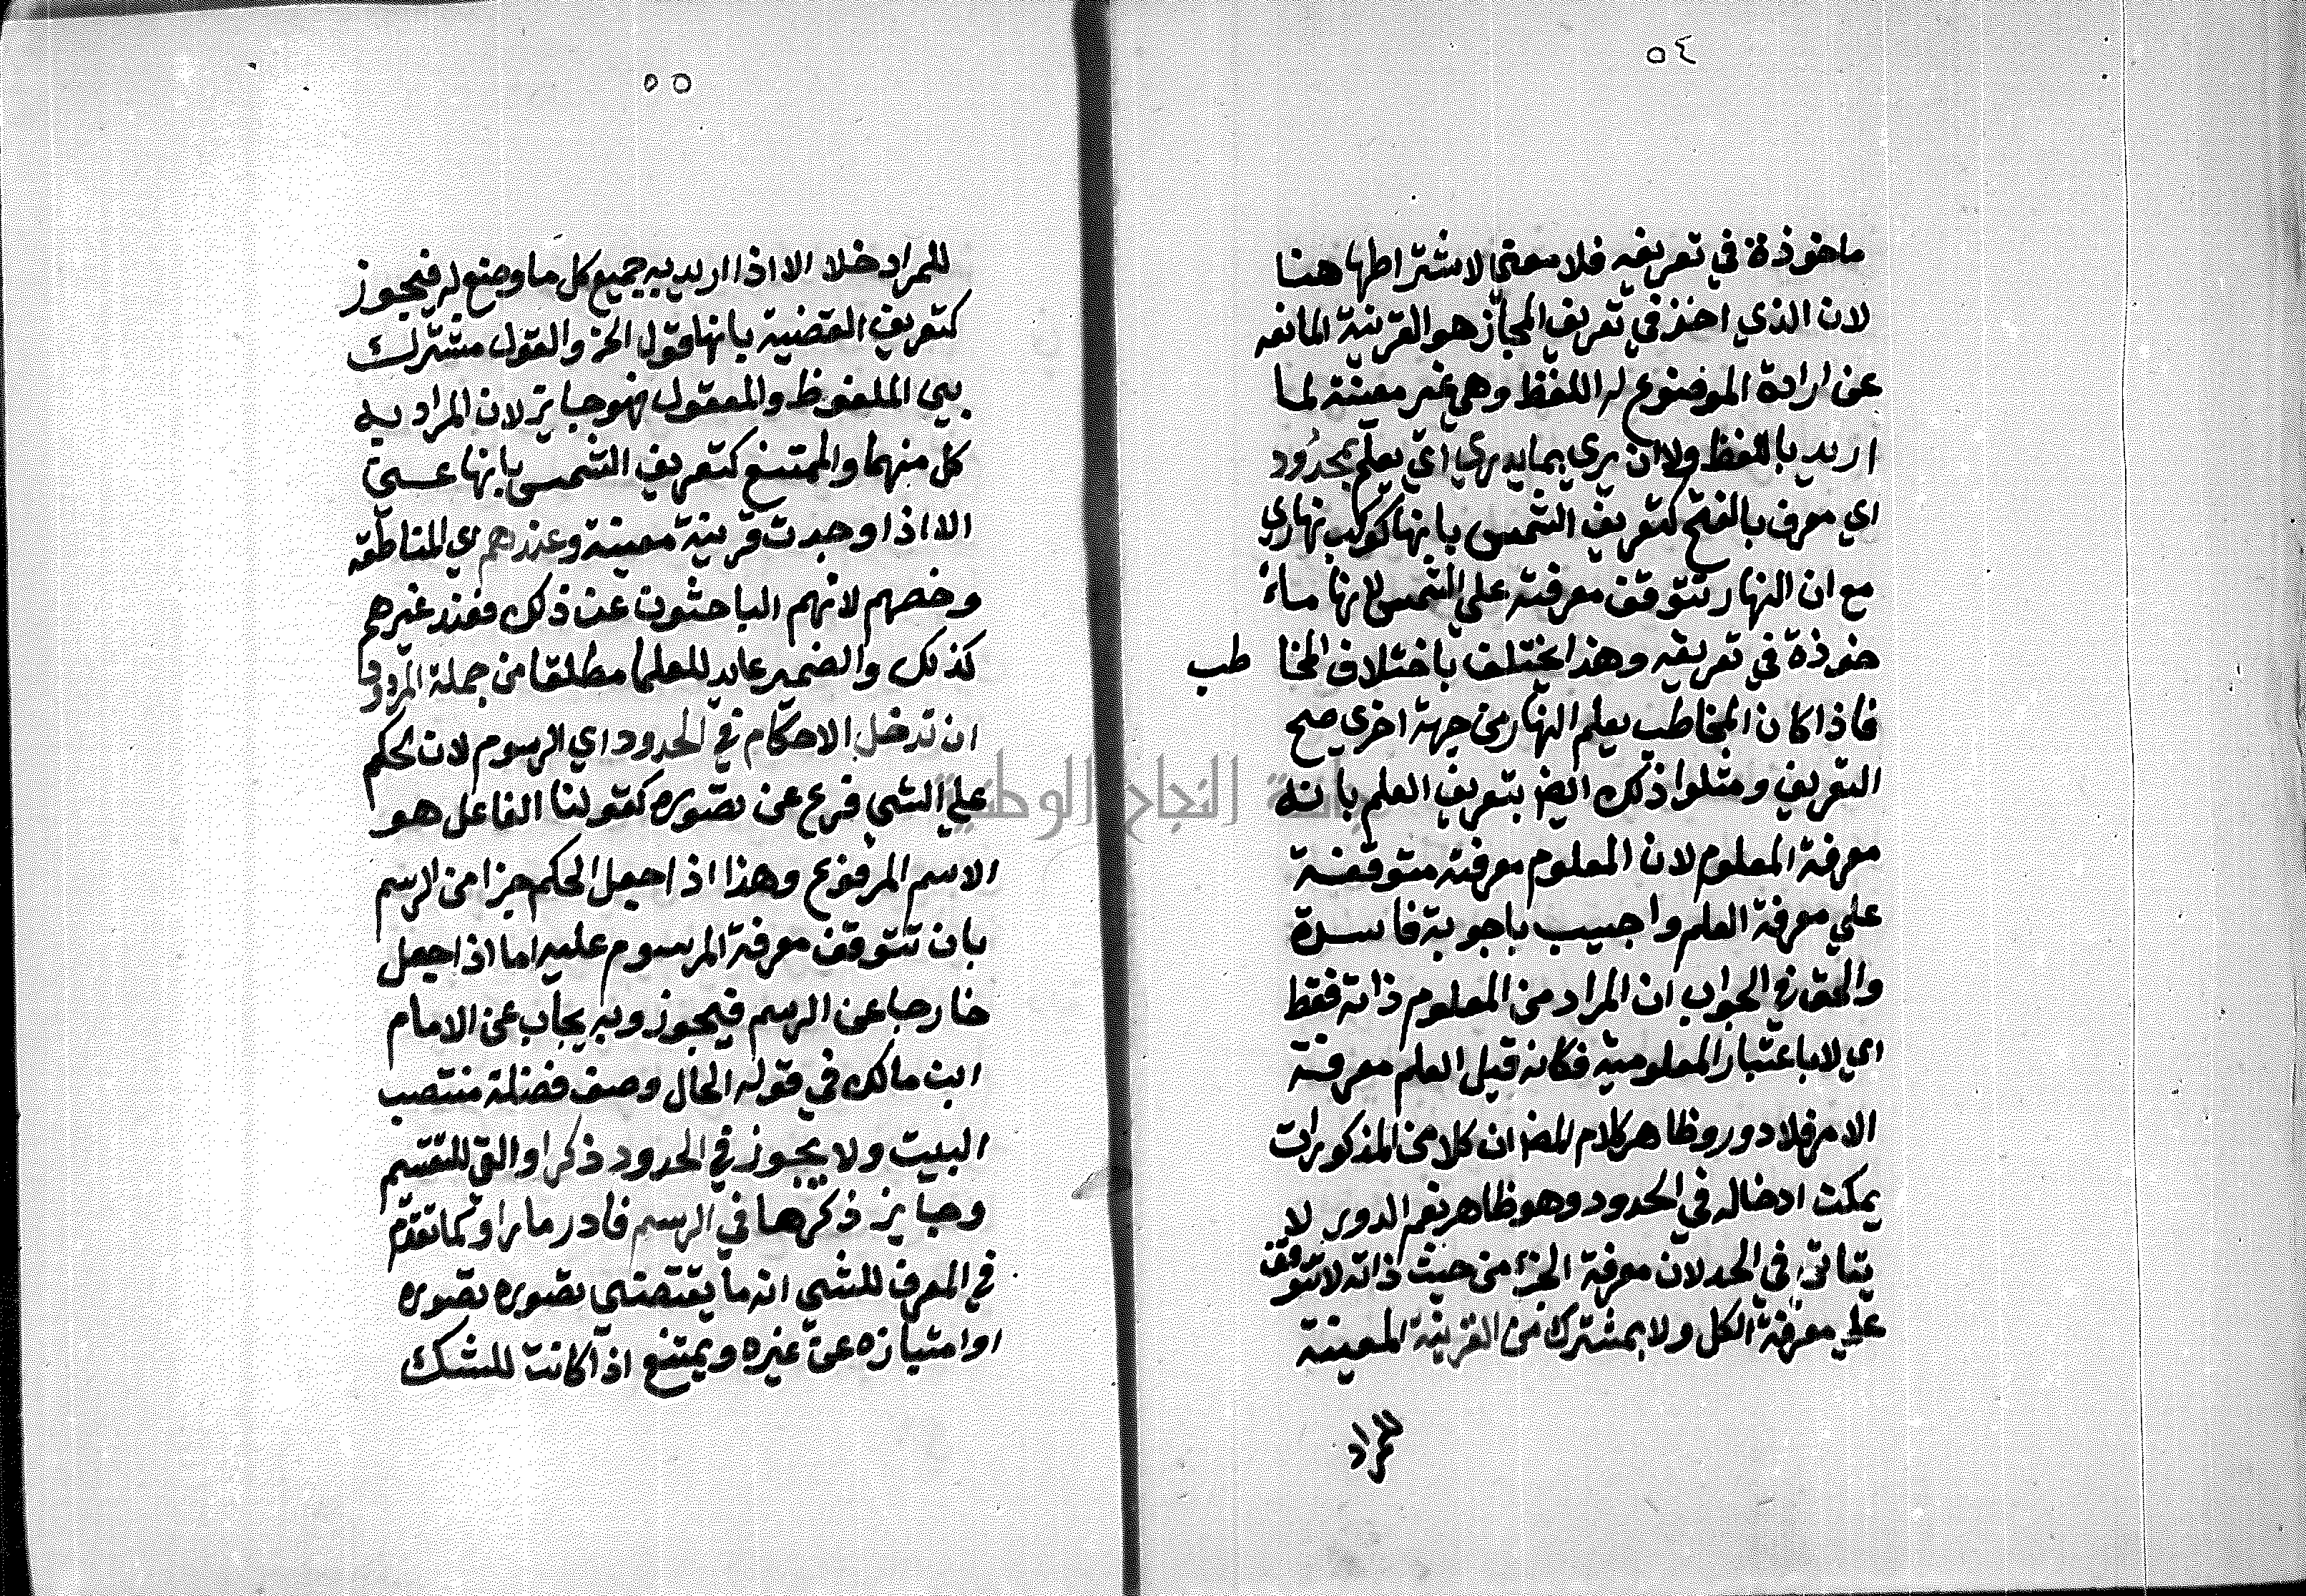 ٥٤
ماخوذة في تعريفه فلا معنى لاشتراطها هنا
لان الذي اخذ في تعريف المجاز هو القرينة المانعه
عن ارادة الموضوع له اللفظ وهي غير معينة لما
اريد باللفظ ولا ان يري بما يدري اي يعلم بمحدود
اي معرف بالفتح كتعريف الشمس بانها كوكب نهاري
مع ان النهار تتوقف معرفته علي الشمس لانها ماء
خوذة في تعريفه وهذا يختلف باختلاف المخا طب
فاذا كان المخاطب يعلم النهار من جهة اخري صح
التعريف ومثلوا ذلك ايضا بتعريف العلم بانه
معرفة المعلوم لان المعلوم معرفته متوقفة
علي معرفة العلم واجيب باجوبة فاسدة
والحق في الجواب ان المراد من المعلوم ذاته فقط
اي لا باعتبار المعلومية فكانه قيل العلم معرفة
الامر فلا دور وظاهر كلام المص ان كلا من المذكورات
يمكن ادخاله في الحدود وهو ظاهر نعم الدور لا
يتاتى في الحد لان معرفة الجزء من حيث ذاته لا تتوقف
علي معرفة الكل ولا بمشترك من القرينة المعينة
للمراد
٥٥
للمراد خلا الا اذا اريد به جميع كل ما وضع له فيجوز
كتعريف القضية بانها قول الخ والقول مشترك
بين الملفوظ والمعقول فهو جايز لان المراد به
كل منهما والممتنع كتعريف الشمس بانها عين
الا اذا وجدت قرينة معينة وعندهم اي المناطقه
وخصهم لانهم الباحثون عن ذلك فعند غيرهم
كذلك والضمير عايد للعلما مطلقا من جملة المردود
ان تدخل الاحكام في الحدود اي الرسوم لان الحكم
علي الشي فرع عن تصوره كقولنا الفاعل هو
الاسم المرفوع وهذا اذا جعل الحكم جزا من الرسم
بان تتوقف معرفة المرسوم عليه اما اذا جعل
خارجا عن الرسم فيجوز وبه يجاب عن الامام
ابن مالك في قوله الحال وصف فضلة منتصب
البيت ولا يجوز في الحدود ذكر او التي للتقسيم
وجايز ذكرها في الرسم فادر ما راوا كما تقدم
في المعرف للشي انه ما يقتضي تصوره تصوره
او امتيازه عن غيره ويمتنع اذا كانت للشك